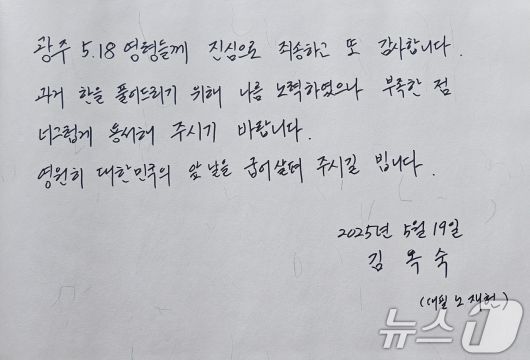 광주 5.18 영령들께 진심으로 죄송하고 또 감사합니다.
과거 한을 풀어드리기 위해 나름 노력하였으나 부족한 점
너그럽게 용서해 주시기 바랍니다.
영원히 대한민국의 앞 날을 굽어살펴 주시길 빕니다.
2025년 5월 19일
김 옥 숙
(대필 노재헌)
뉴스1